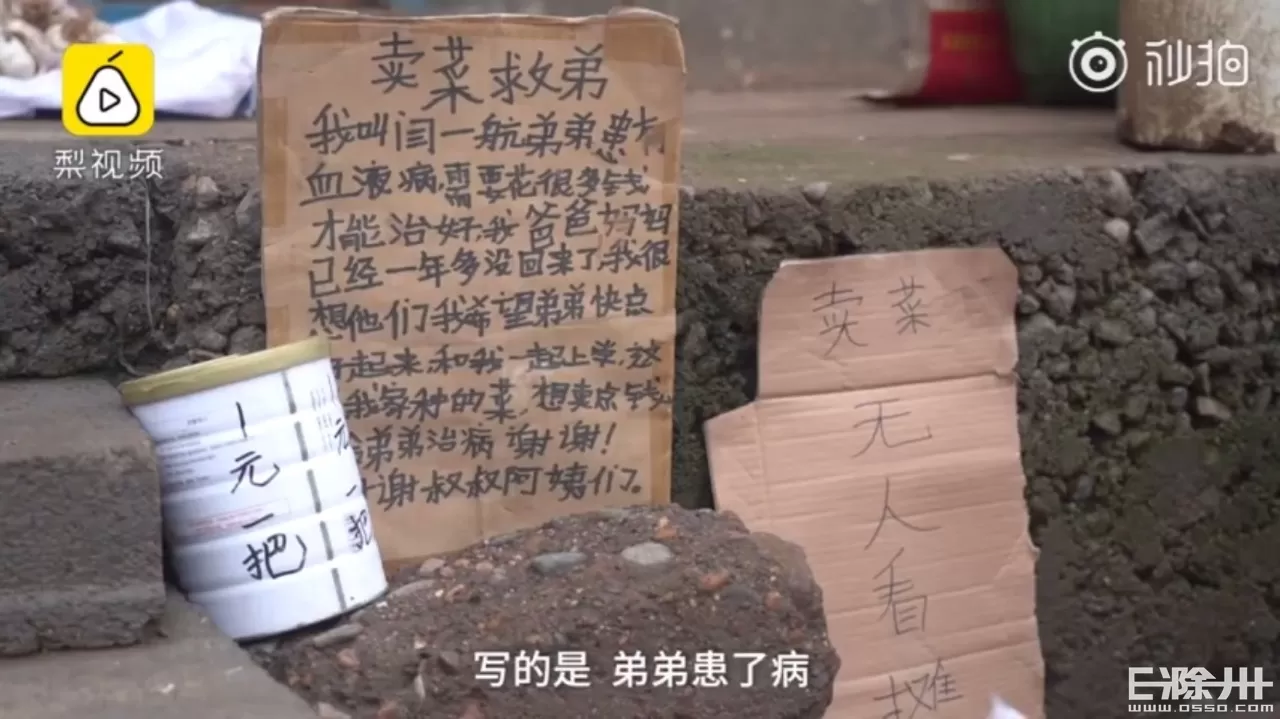 梨视频
秒拍
卖菜救弟
我叫闫一航弟弟患有
血液病,需要花很多钱,
才能治好,我爸爸妈妈
已经一年多没回来了,我很
想他们我希望弟弟快点
起来,和我一起上学,这
我家种的菜,想卖点钱
弟弟治病谢谢!
谢叔叔阿姨们。
1元一把
元一把
卖菜
无人看摊
写的是 弟弟患了病
E滁州
www.osso.com